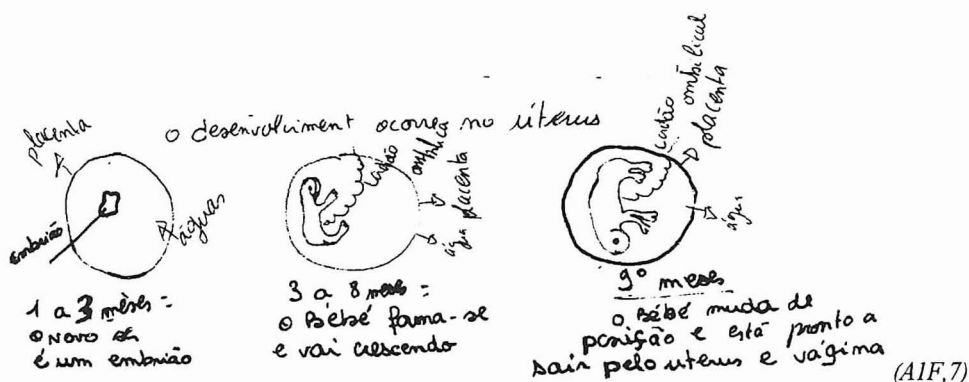 o desenvolviment ocorre no úterus
placenta
embrião
águas
1 a 3 mêses =
o novo
é um embrião
cordão
placenta
água
3 a 8 meses =
o Bébé forma-se
e vai crescendo
cordão ombilical
placenta
águs
9º meses
o Bébé muda de
posição e está pronto a
sair pelo uterus e vágina
(A1F,7)